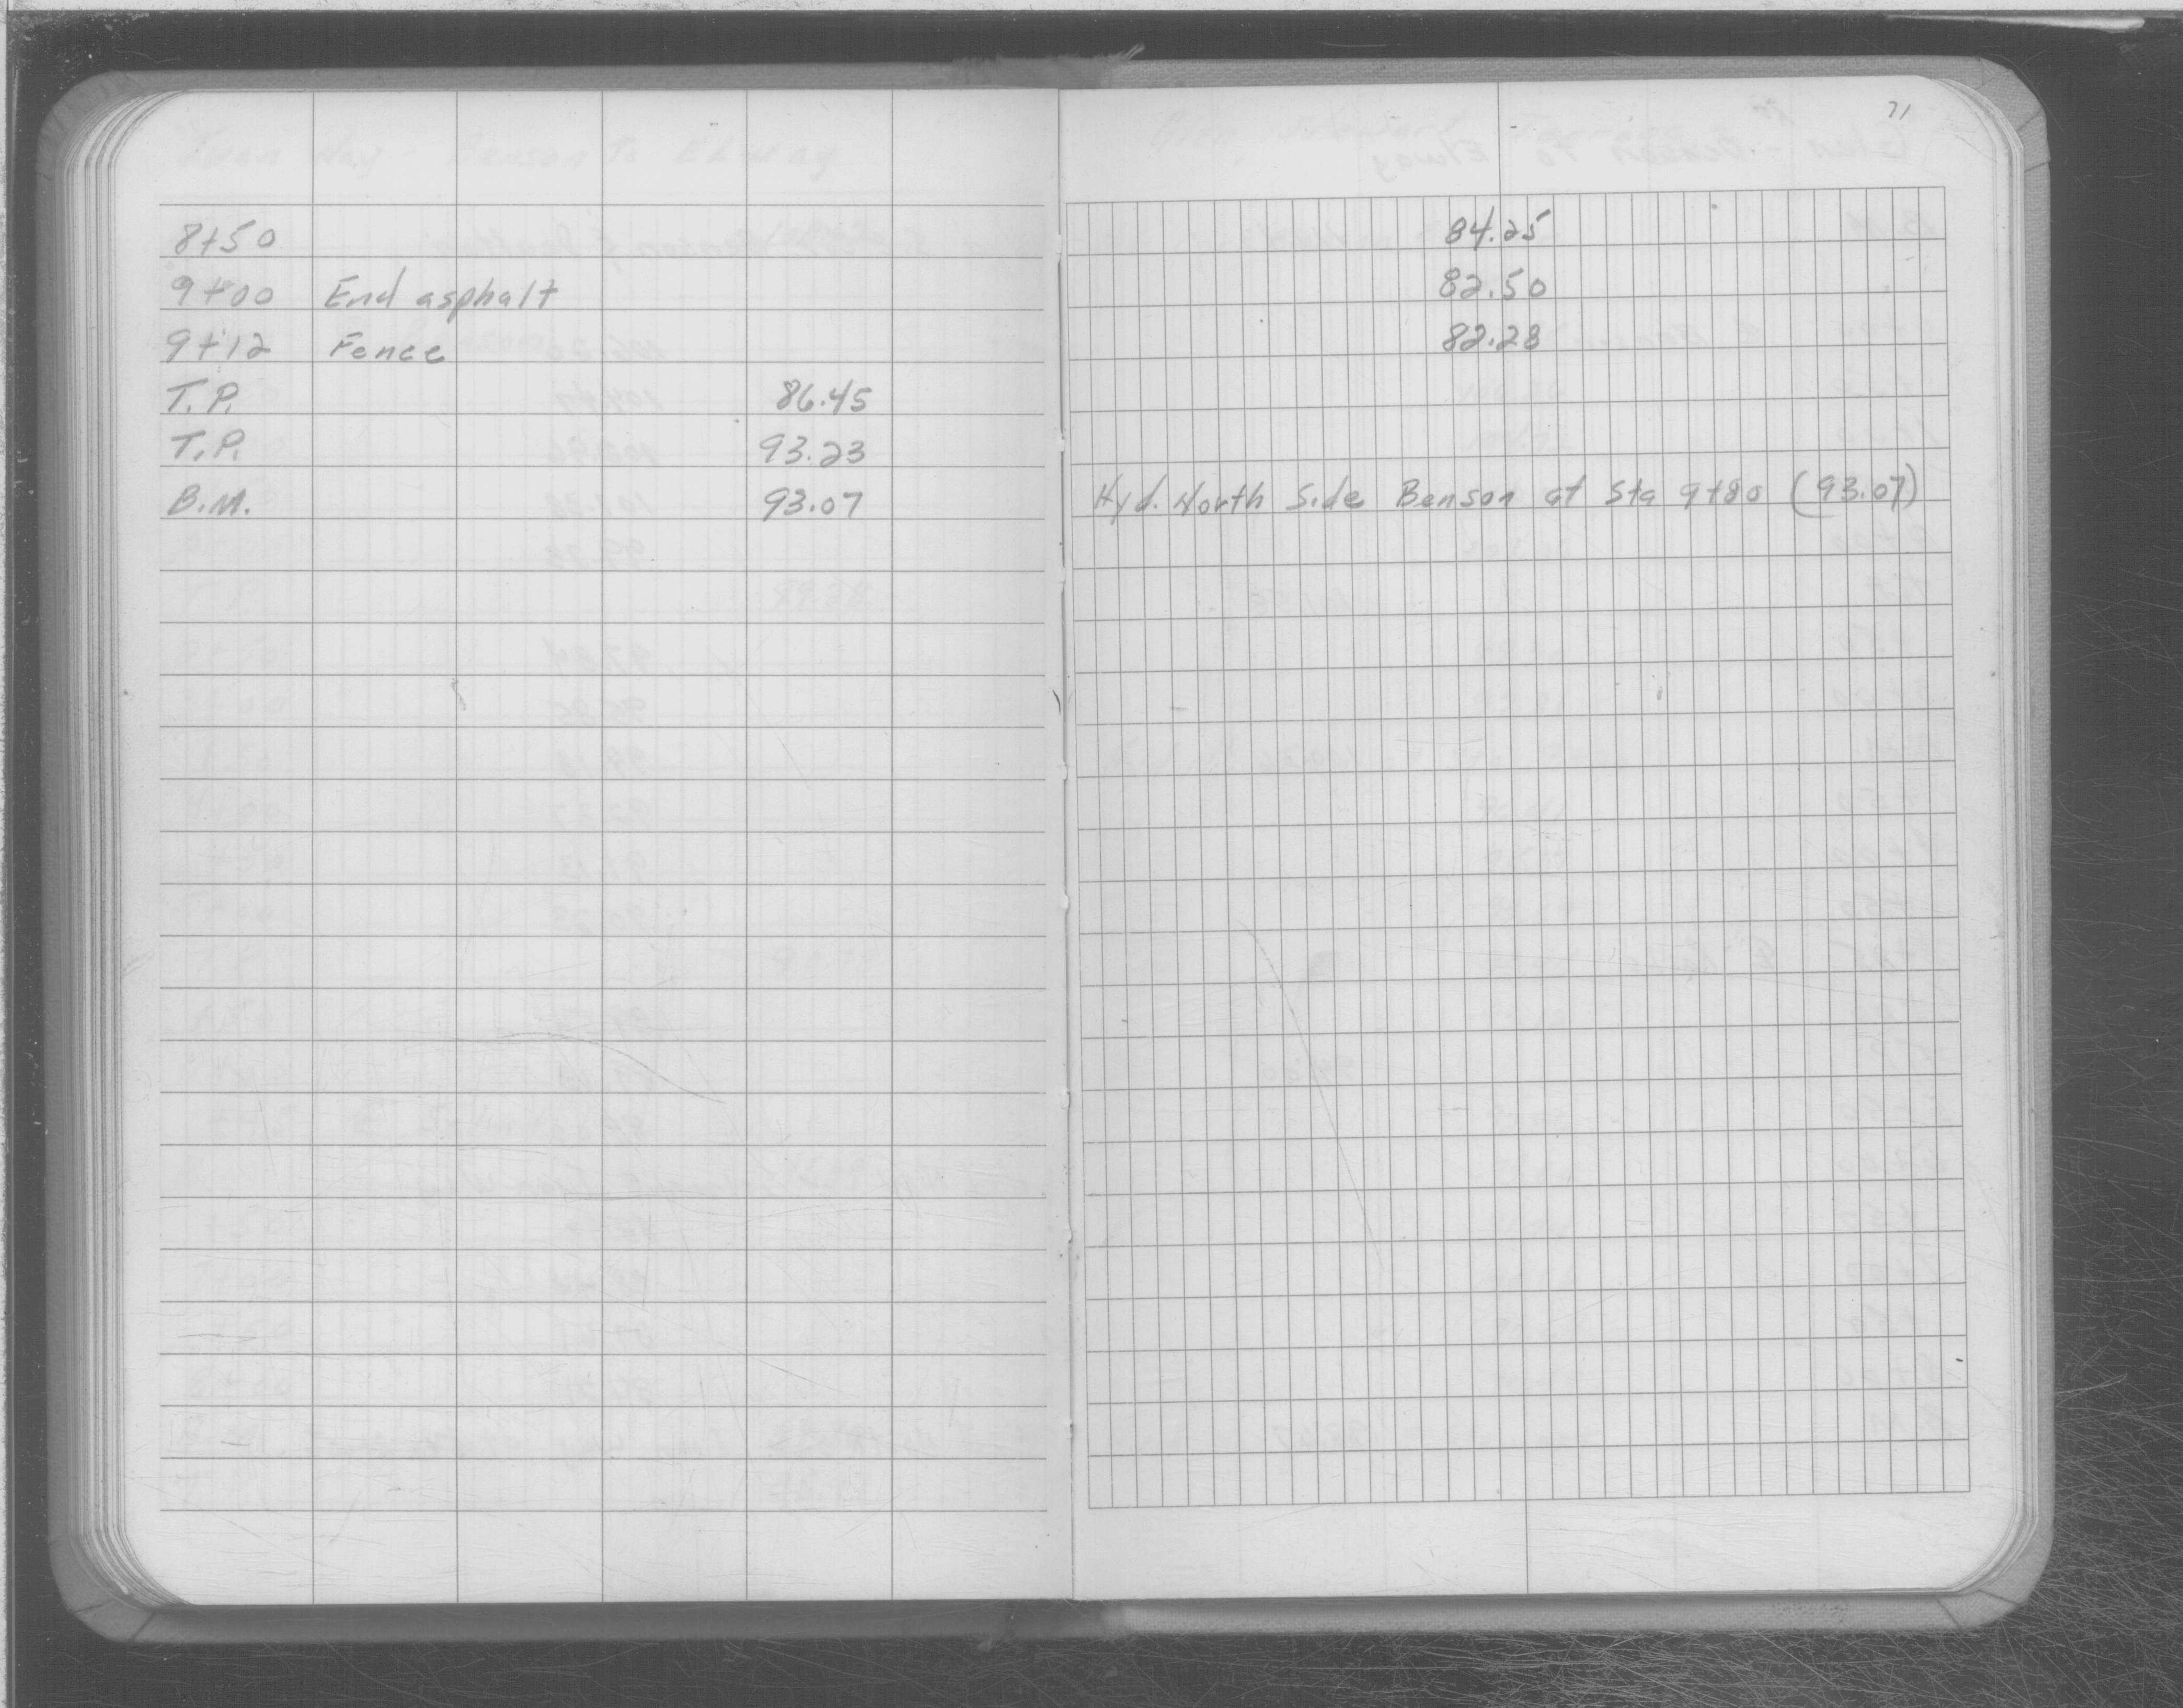 71
8+50 84.25
9+00 End asphalt 82.50
9+12 Fence 82.28
T.P. 86.45
T.P. 93.23
B.M. 93.07 Hyd. North Side Benson at Sta 9+80 (93.07)